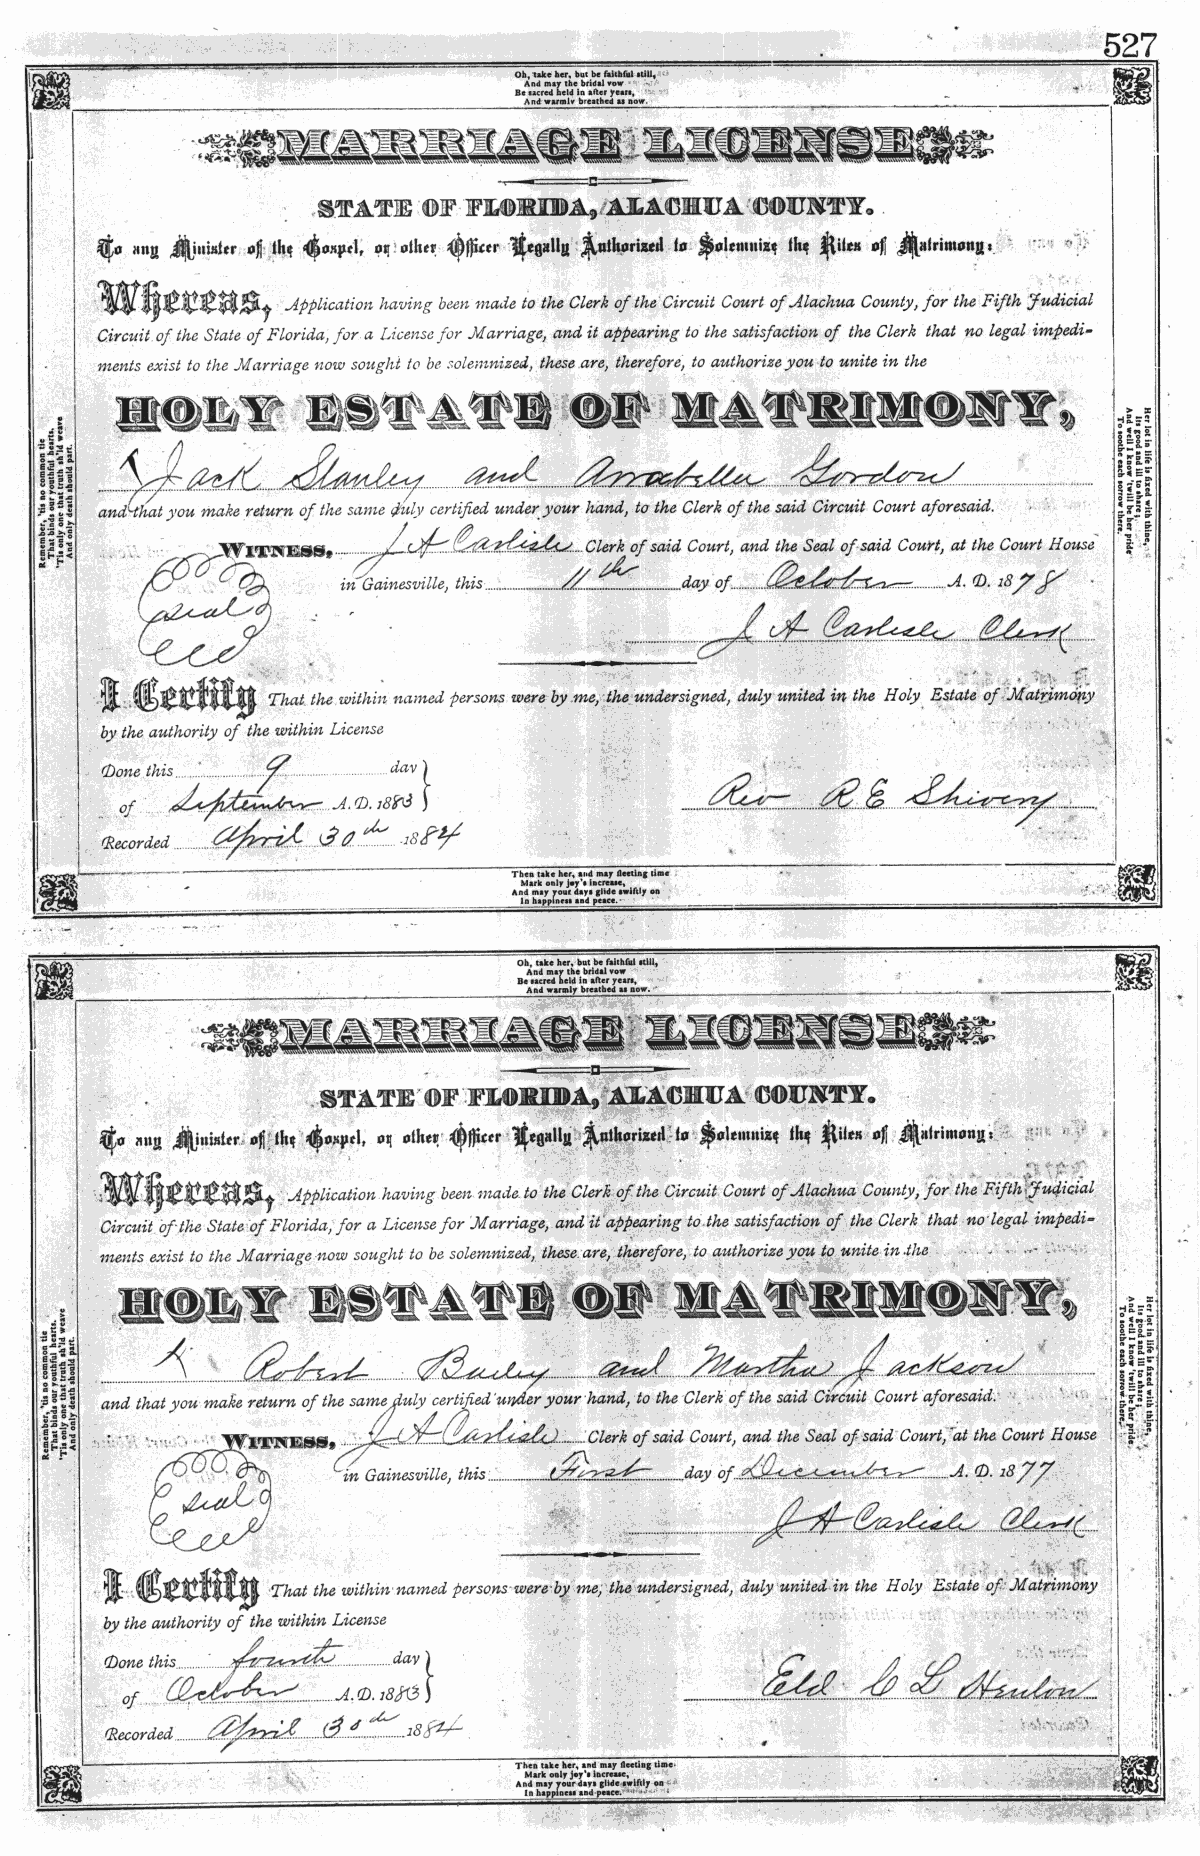 527
Oh, take her, but be faithful still,
And may the bridal vow
Be sacred held in after years,
And warmly breathed as now.
MARRIAGE LICENSE
STATE OF FLORIDA, ALACHUA COUNTY.
To any Minister of the Gospel, or other Officer Legally Authorized to Solemnize the Rites of Matrimony:
Whereas, Application having been made to the Clerk of the Circuit Court of Alachua County, for the Fifth Judicial
Circuit of the State of Florida, for a License for Marriage, and it appearing to the satisfaction of the Clerk that no legal impedi-
ments exist to the Marriage now sought to be solemnized, these are, therefore, to authorize you to unite in the
HOLY ESTATE OF MATRIMONY,
Jack Stanley and Arrabella Gordon
and that you make return of the same duly certified under your hand, to the Clerk of the said Circuit Court aforesaid.
WITNESS, J A Carlisle Clerk of said Court, and the Seal of said Court, at the Court House
in Gainesville, this 11th day of October A. D. 1878
seal
J A Carlisle Clerk
I Certify That the within named persons were by me, the undersigned, duly united in the Holy Estate of Matrimony
by the authority of the within License
Done this 9 day
of September A.D. 1883
Rev R E Shivery
Recorded April 30th 1884
Remember, 'tis no common tie
That binds our youthful hearts,
'Tis only one that truth sh'ld weave
And only death should part.
Her lot in life is fixed with thine,
Its good and ill to share;
And well I know 'twill be her pride
To soothe each sorrow there.
Then take her, and may fleeting time
Mark only joy's increase,
And may your days glide swiftly on
In happiness and peace.
Oh, take her, but be faithful still,
And may the bridal vow
Be sacred held in after years,
And warmly breathed as now.
MARRIAGE LICENSE
STATE OF FLORIDA, ALACHUA COUNTY.
To any Minister of the Gospel, or other Officer Legally Authorized to Solemnize the Rites of Matrimony:
Whereas, Application having been made to the Clerk of the Circuit Court of Alachua County, for the Fifth Judicial
Circuit of the State of Florida, for a License for Marriage, and it appearing to the satisfaction of the Clerk that no legal impedi-
ments exist to the Marriage now sought to be solemnized, these are, therefore, to authorize you to unite in the
HOLY ESTATE OF MATRIMONY,
Robert Bailey and Martha Jackson
and that you make return of the same duly certified under your hand, to the Clerk of the said Circuit Court aforesaid.
WITNESS, J A Carlisle Clerk of said Court, and the Seal of said Court, at the Court House
in Gainesville, this First day of December A. D. 1877
seal
J A Carlisle Clerk
I Certify That the within named persons were by me, the undersigned, duly united in the Holy Estate of Matrimony
by the authority of the within License
Done this fourth day
of October A.D. 1883
Eld C L Henlon
Recorded April 30th 1884
Remember, 'tis no common tie
That binds our youthful hearts,
'Tis only one that truth sh'ld weave
And only death should part.
Her lot in life is fixed with thine,
Its good and ill to share;
And well I know 'twill be her pride
To soothe each sorrow there,
Then take her, and may fleeting time
Mark only joy's increase,
And may your days glide swiftly on
In happiness and peace.